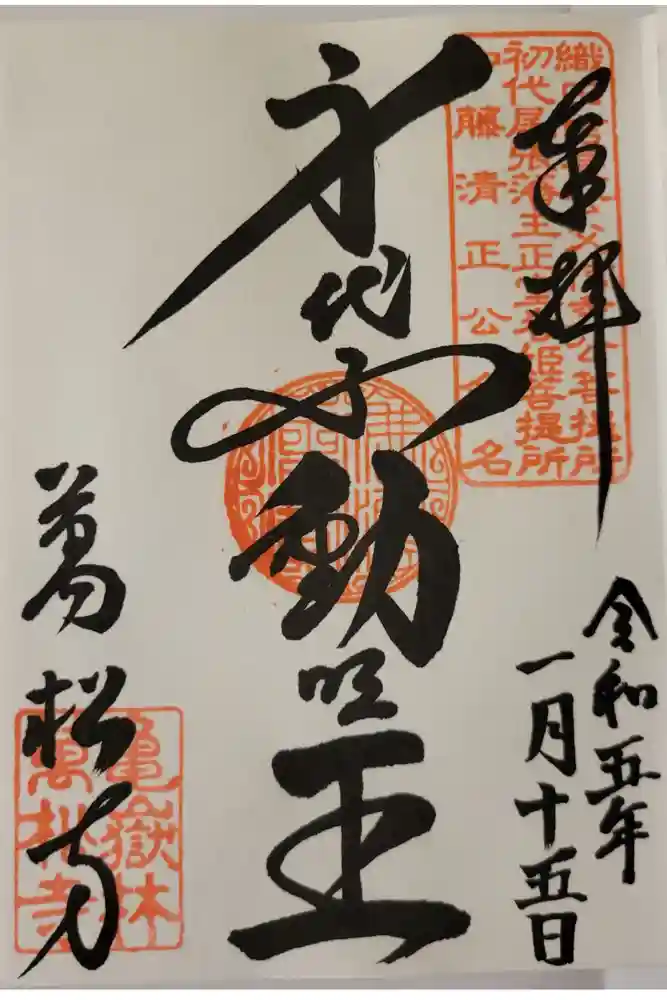 奉拝
織田信長公父信秀公菩提所
初代尾張藩主正室春姫菩提所
加藤清正公命名
令和五年
一月十五日
身代不動明王
萬松寺
亀嶽林
萬松寺